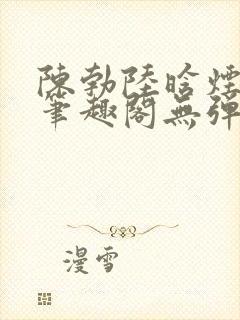 陳勃陸晗煙
筆趣閣無彈
漫雪